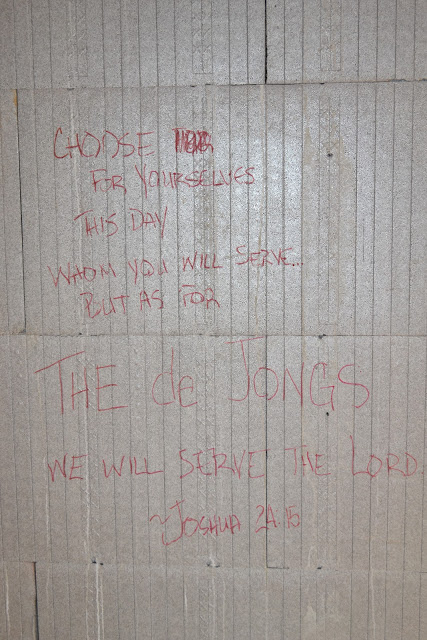 CHOOSE
FOR YOURSELVES
THIS DAY
WHOM YOU WILL SERVE...
BUT AS FOR
THE de JONGS
WE WILL SERVE THE LORD
~JOSHUA 24:15